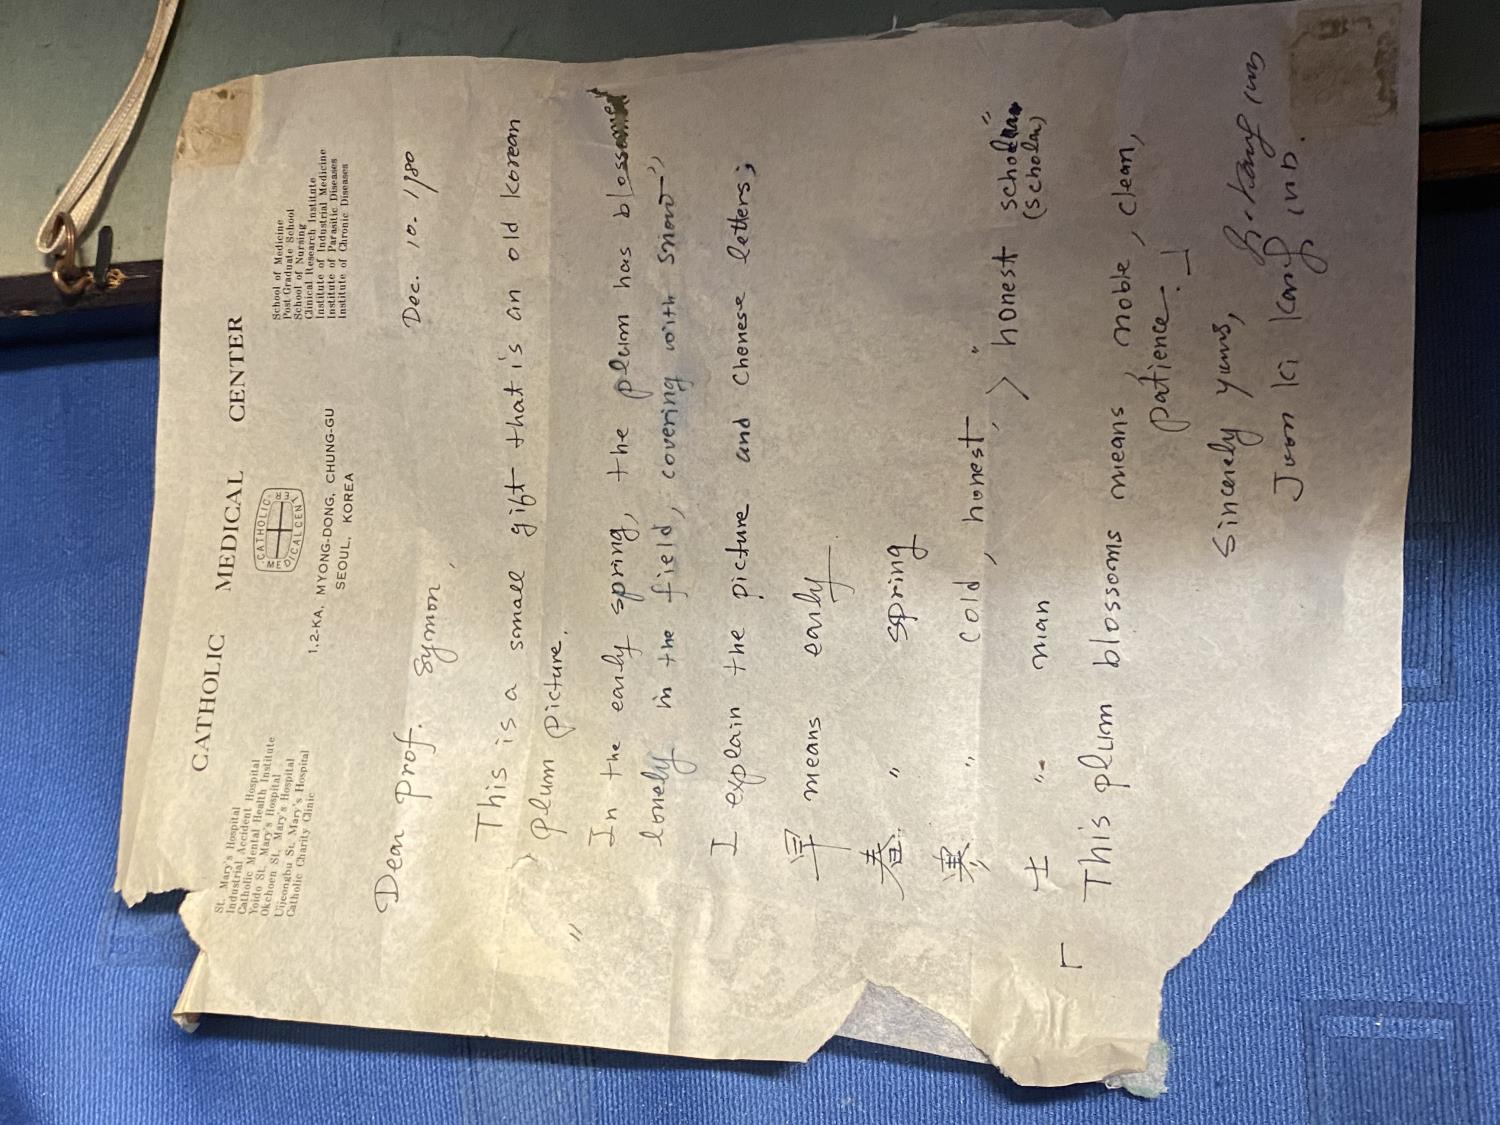 CATHOLIC MEDICAL CENTER
St. Mary's Hospital
Industrial Accident Hospital
Catholic Mental Health Institute
Yoido St. Mary's Hospital
Okcheon St. Mary's Hospital
Uijeongbu St. Mary's Hospital
Catholic Charity Clinic
CATHOLIC
MEDICAL CENTER
1.2-KA, MYONG-DONG, CHUNG-GU
SEOUL, KOREA
School of Medicine
Post Graduate School
School of Nursing
Clinical Research Institute
Institute of Industrial Medicine
Institute of Parasitic Diseases
Institute of Chronic Diseases
Dec. 10. 1980
Dear Prof. Symon,
This is a small gift that is an old Korean
plum picture.
" In the early spring, the plum has blossomed
lonely in the field, covering with snow",
I explain the picture and Chenese letters;
早 means early
春 " spring
寒 " cold, honest, > "honest scholar"
(scholar)
士 " man
「 This plum blossoms means, noble, clean,
patience.」
Sincerely yours,
Joon Ki Kang M.D.